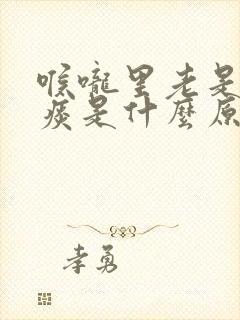 喉嚨里老是
痰是什麼原
李勇